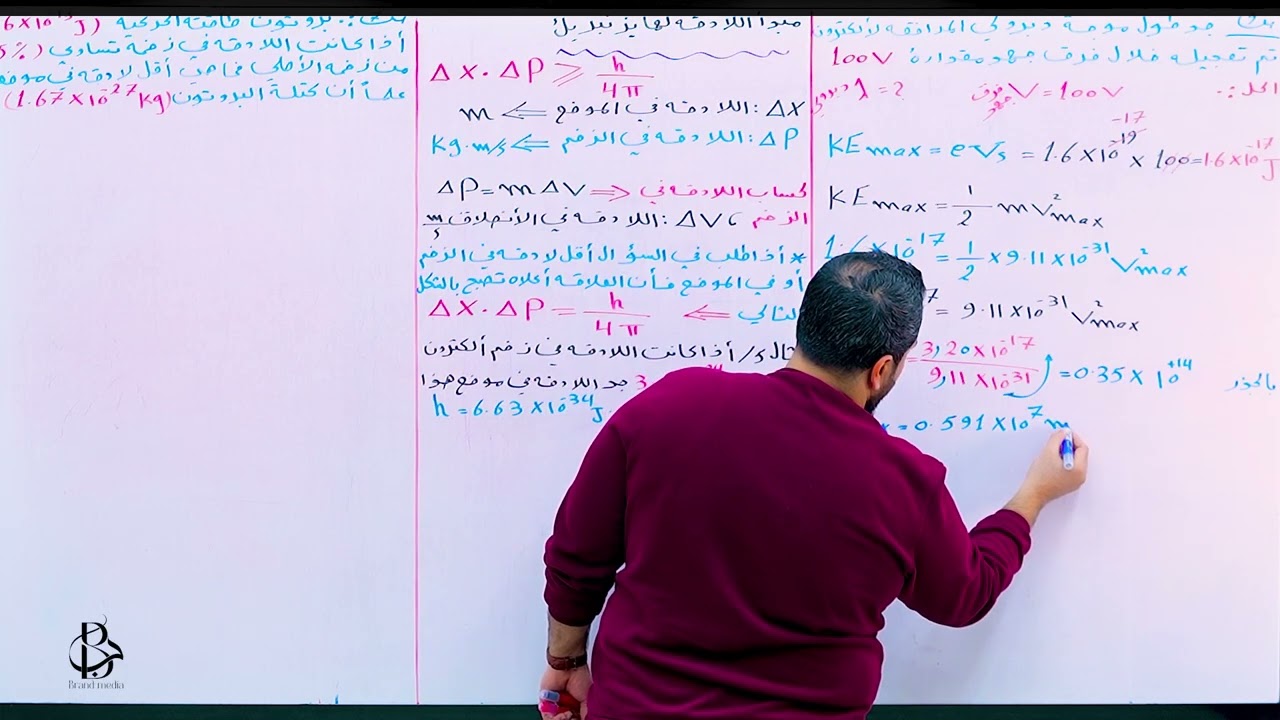 جد طول موجة ديبرولي المرافقه لألكترون
تم تعجيله خلال فرق جهد مقداره 100V
الحل:-
فرق جهد V = 100V
λ = ?
KEmax = eVs = 1.6 X 10⁻¹⁹ x 100 = 1.6 X 10⁻¹⁷ J
-17
KEmax = 1/2 mV²max
1.6 X 10⁻¹⁷ = 1/2 x 9.11 X 10⁻³¹ V²max
= 9.11 X 10⁻³¹ V²max
= 3.20 X 10⁻¹⁷ / 9.11 X 10⁻³¹ = 0.35 X 10⁺¹⁴
بالجذر
= 0.591 X 10⁷ m
مبدأ اللادقه لهايزنبيرك
Δx . ΔP ⩾ h / 4π
Δx : اللادقه في الموقع ⇐ m
ΔP : اللادقه في الزخم ⇐ kg.m/s
لحساب اللادقه في ⇒ ΔP = m ΔV
الزخم ، ΔV : اللادقه في الأنطلاق m/s
* أذا طلب في السؤال أقل لادقه في الزخم
أو في الموقع فأن العلاقه أعلاه تصبح بالشكل
التالي ⇐ Δx . ΔP = h / 4π
مثال / أذا كانت اللادقه في زخم ألكترون
3 جد اللادقه في موقع هذا
h = 6.63 X 10⁻³⁴ J.
بروتون طاقته الحركية
أذا كانت اللادقه في زخمه تساوي (5%
من زخمه الأصلي فما هي أقل لادقه في موقعه
علماً أن كتلة البروتون (1.67 X 10⁻²⁷ kg)
Brand media